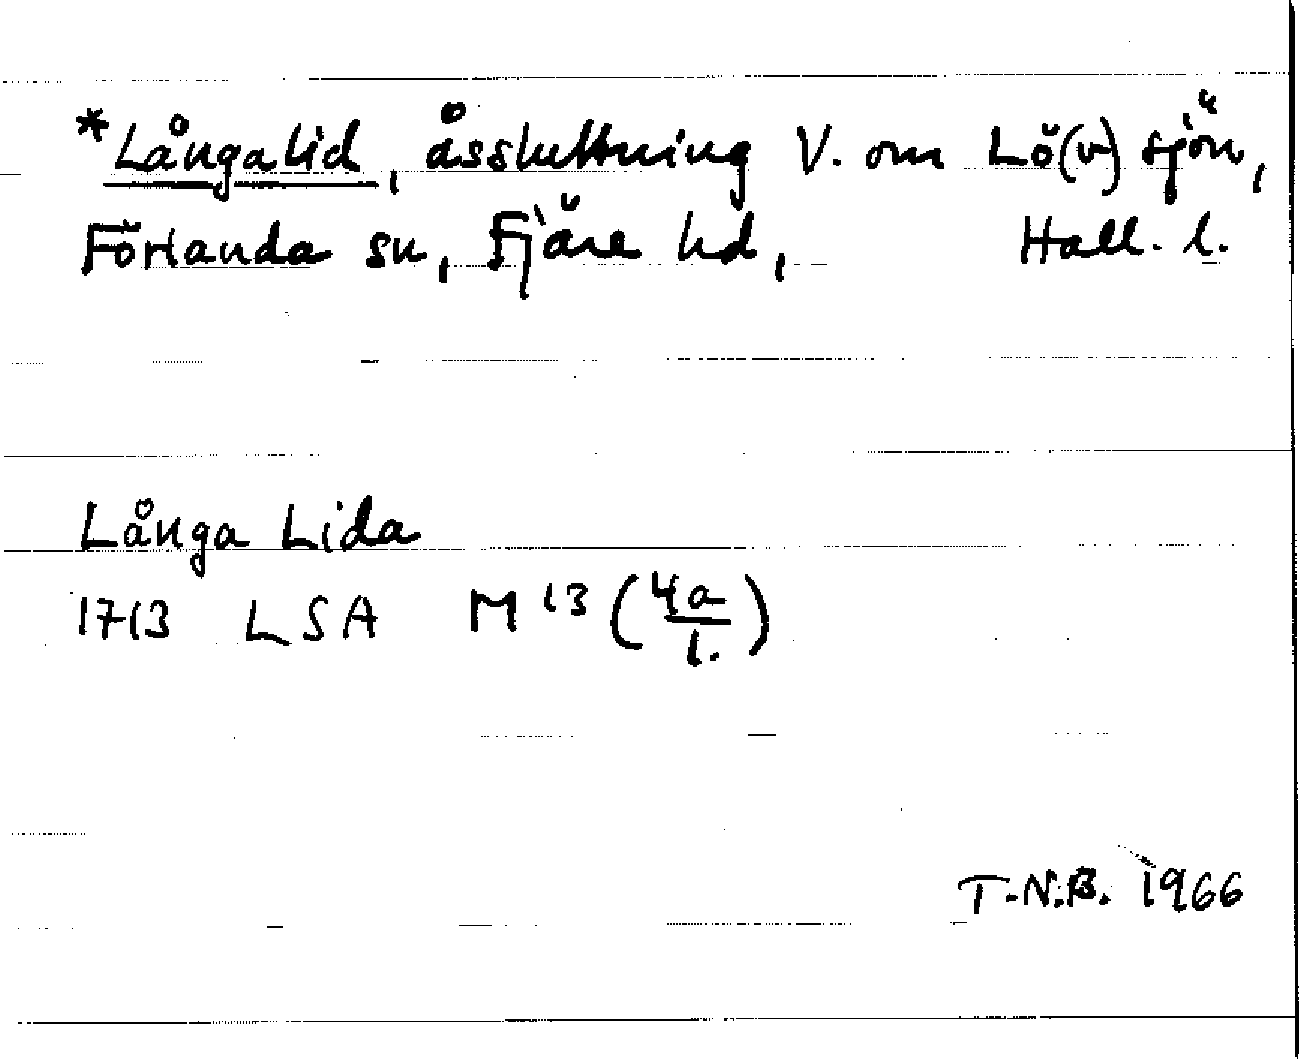 *Långalid, åssluttning V. om Lö(v)sjön,
Förlanda sn, Fjäre hd, Hall. l.
Långa Lida
1713 LSA M 13 (4a/1.)
T.N.B. 1966